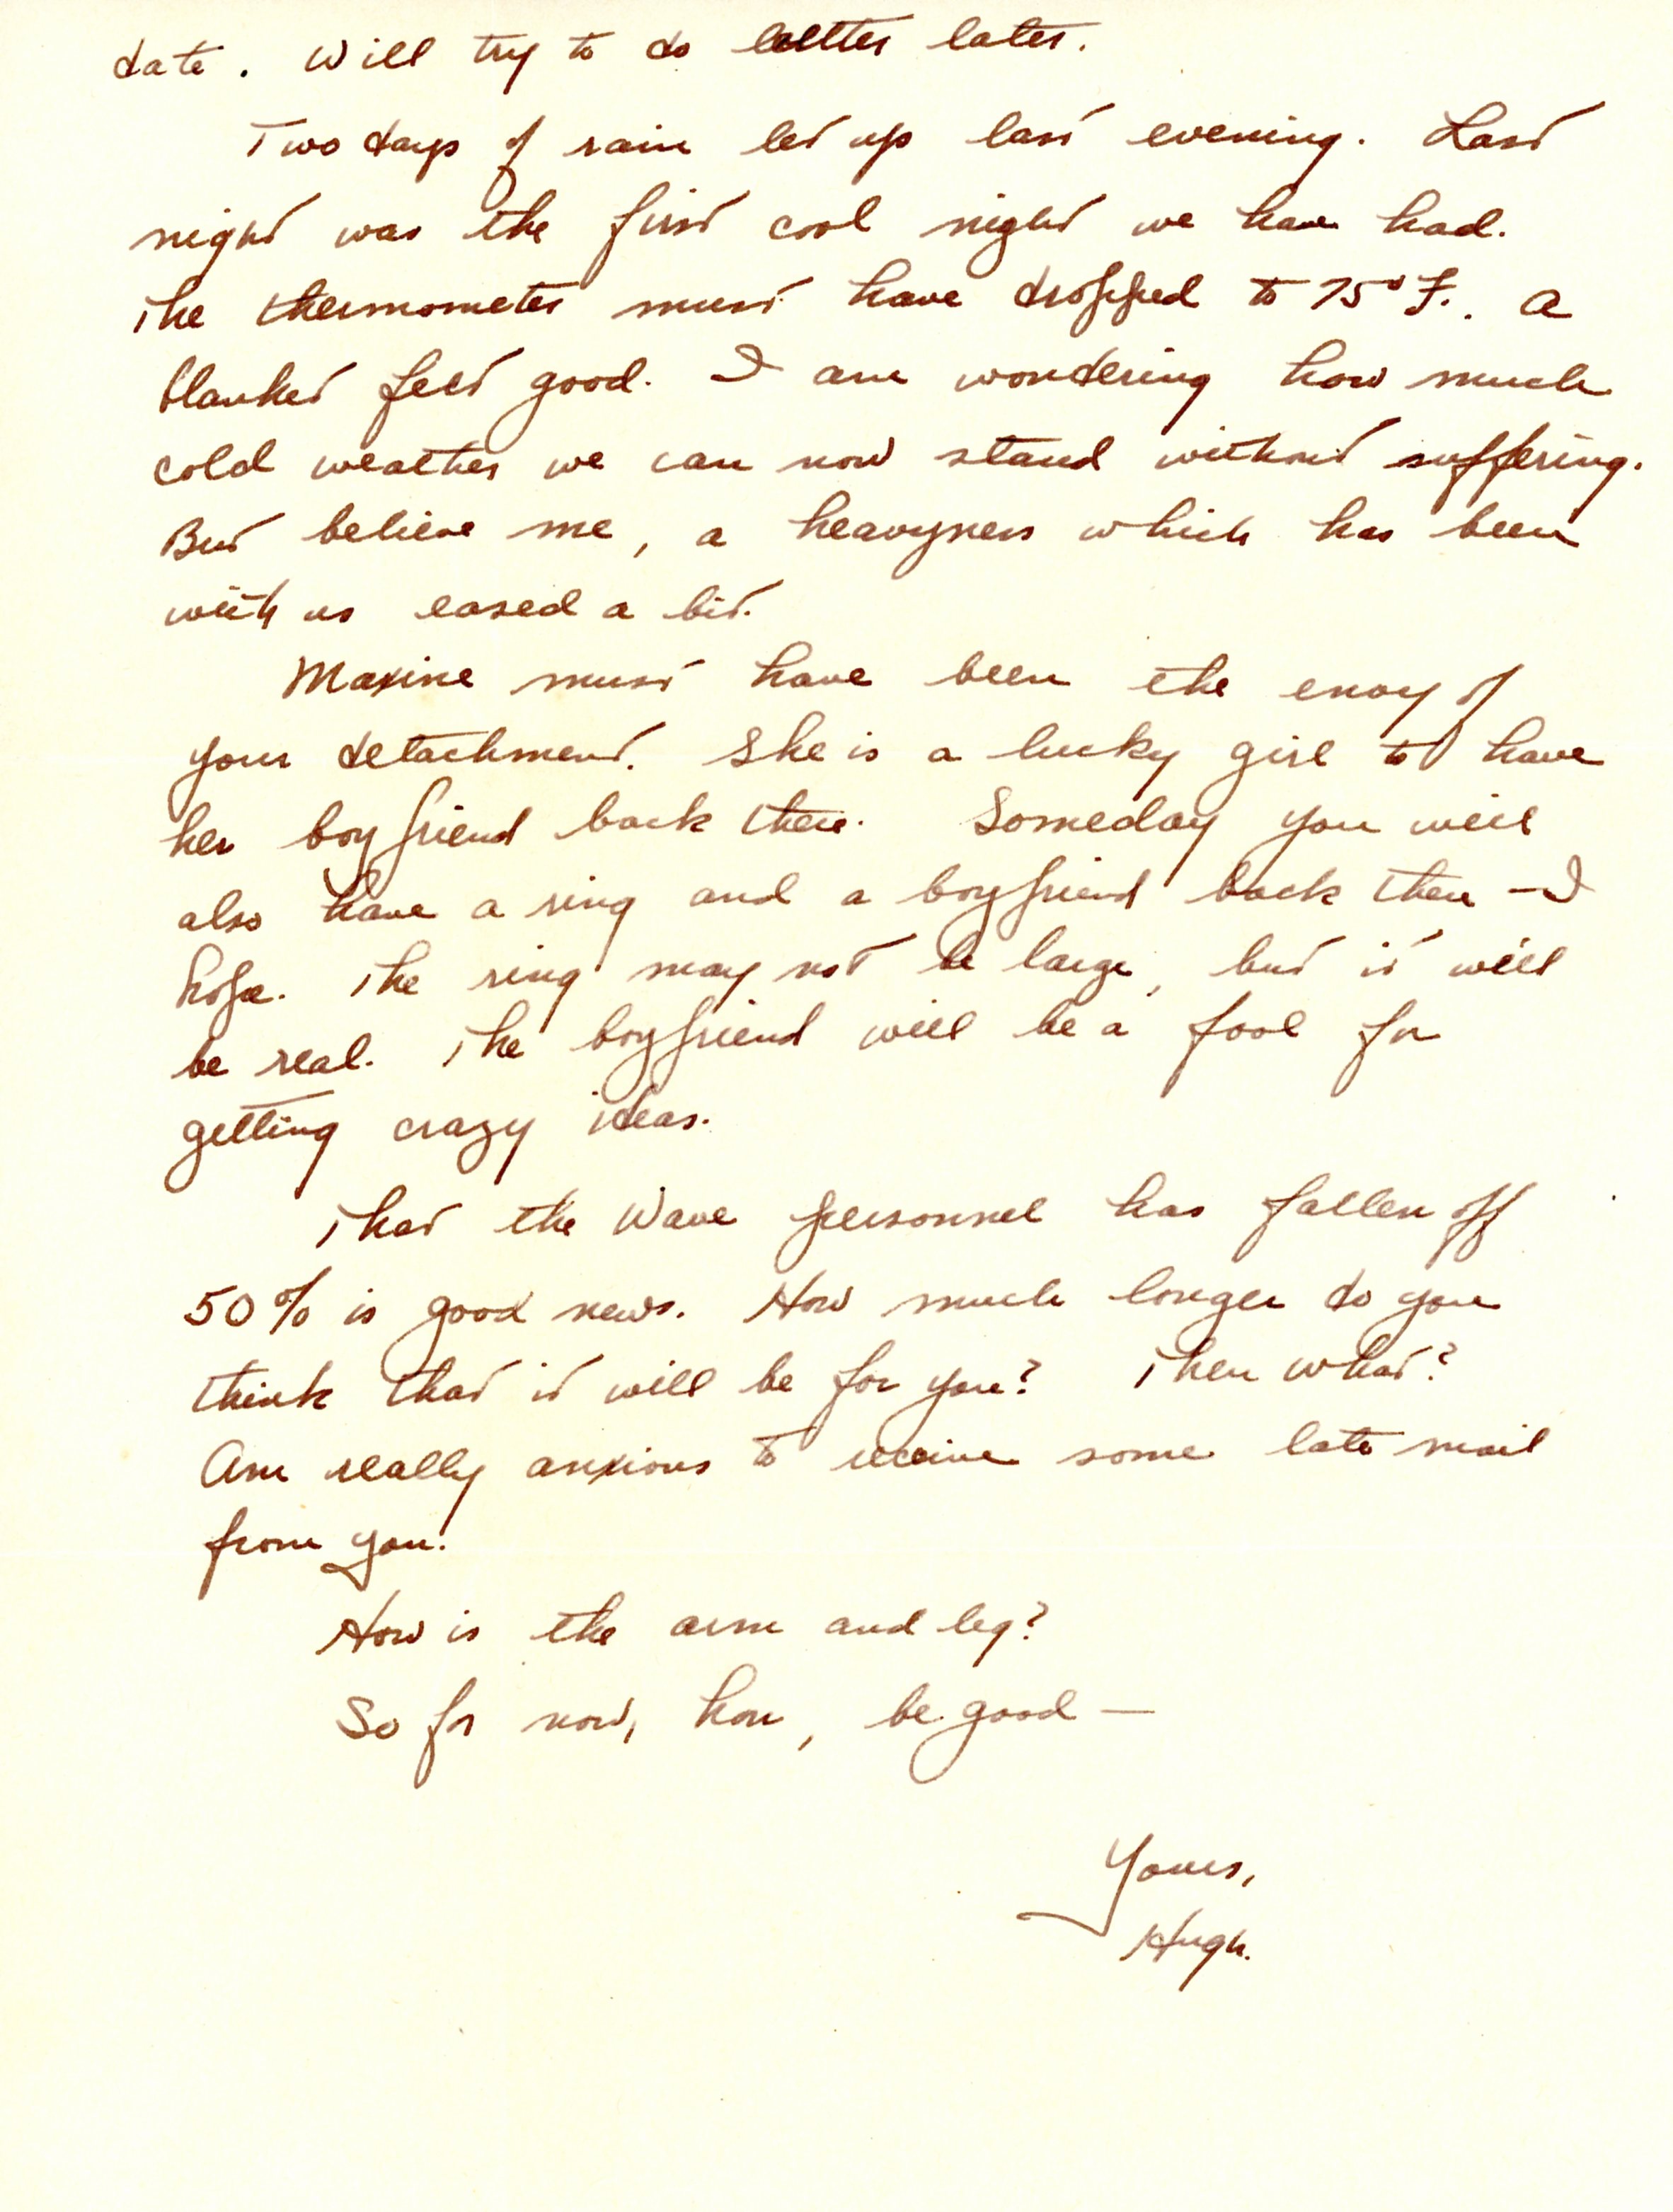 date. Will try to do better later.
Two days of rain let up last evening. Last
night was the first cool night we have had.
The thermometer must have dropped to 75° F. . A
blanket felt good. I am wondering how much
cold weather we can now stand without suffering.
But believe me, a heavyness which has been
with us eased a bit.
Maxine must have been the envy of
your detachment. She is a lucky girl to have
her boyfriend back there. Someday you will
also have a ring and a boyfriend back there — I
hope. The ring may not be large, but it will
be real. The boyfriend will be a fool for
getting crazy ideas.
That the Wave personnel has fallen off
50% is good news. How much longer do you
think that it will be for you? Then what?
Am really anxious to receive some late mail
from you.
How is the arm and leg?
So for now, hon, be good —
Yours,
Hugh.